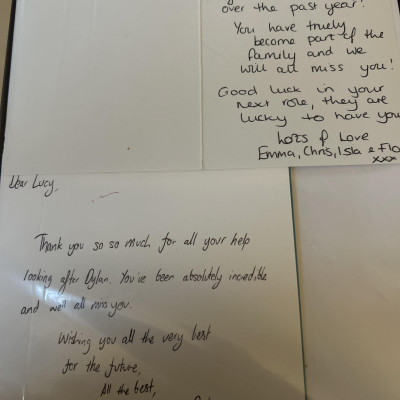 over the past year!
You have truely
become part of the
family and we
will all miss you!
Good luck in your
next role, they are
lucky to have you
Lots of Love
Emma, Chris, Isla & Flo
xxx
Dear Lucy,
Thank you so so much for all your help
looking after Dylan. You've been absolutely incredible
and we'll all miss you.
Wishing you all the very best
for the future,
All the best,